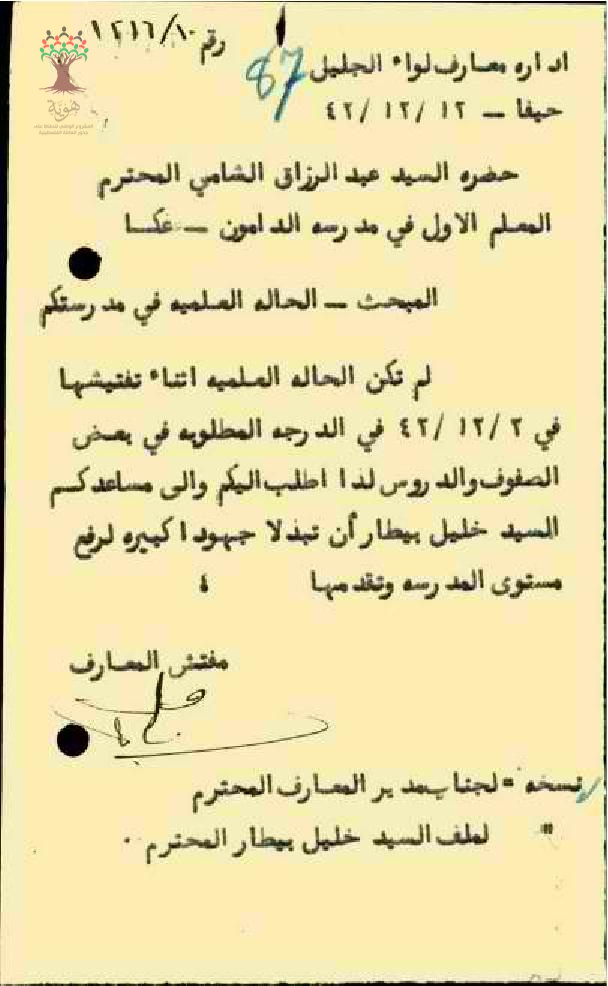 رقم ١٢١٦/١٠
اداره معارف لواء الجليل
87
حيفا – ١٢ /١٢ /٤٢
هوية
حضره السيد عبد الرزاق الشامي المحترم
المعلم الاول في مدرسه الدامون – عكا
المبحث – الحاله العلميه في مدرستكم
لم تكن الحاله العلميه اثناء تفتيشها
في ٢ /١٢ /٤٢ في الدرجه المطلوبه في بعض
الصفوف والدروس لذا اطلب اليكم والى مساعدكم
السيد خليل بيطار أن تبذلا جهودا كبيره لرفع
مستوى المدرسه وتقدمها ٤
مفتش المعارف
نسخه = لجناب مدير المعارف المحترم
" لملف السيد خليل بيطار المحترم ٠